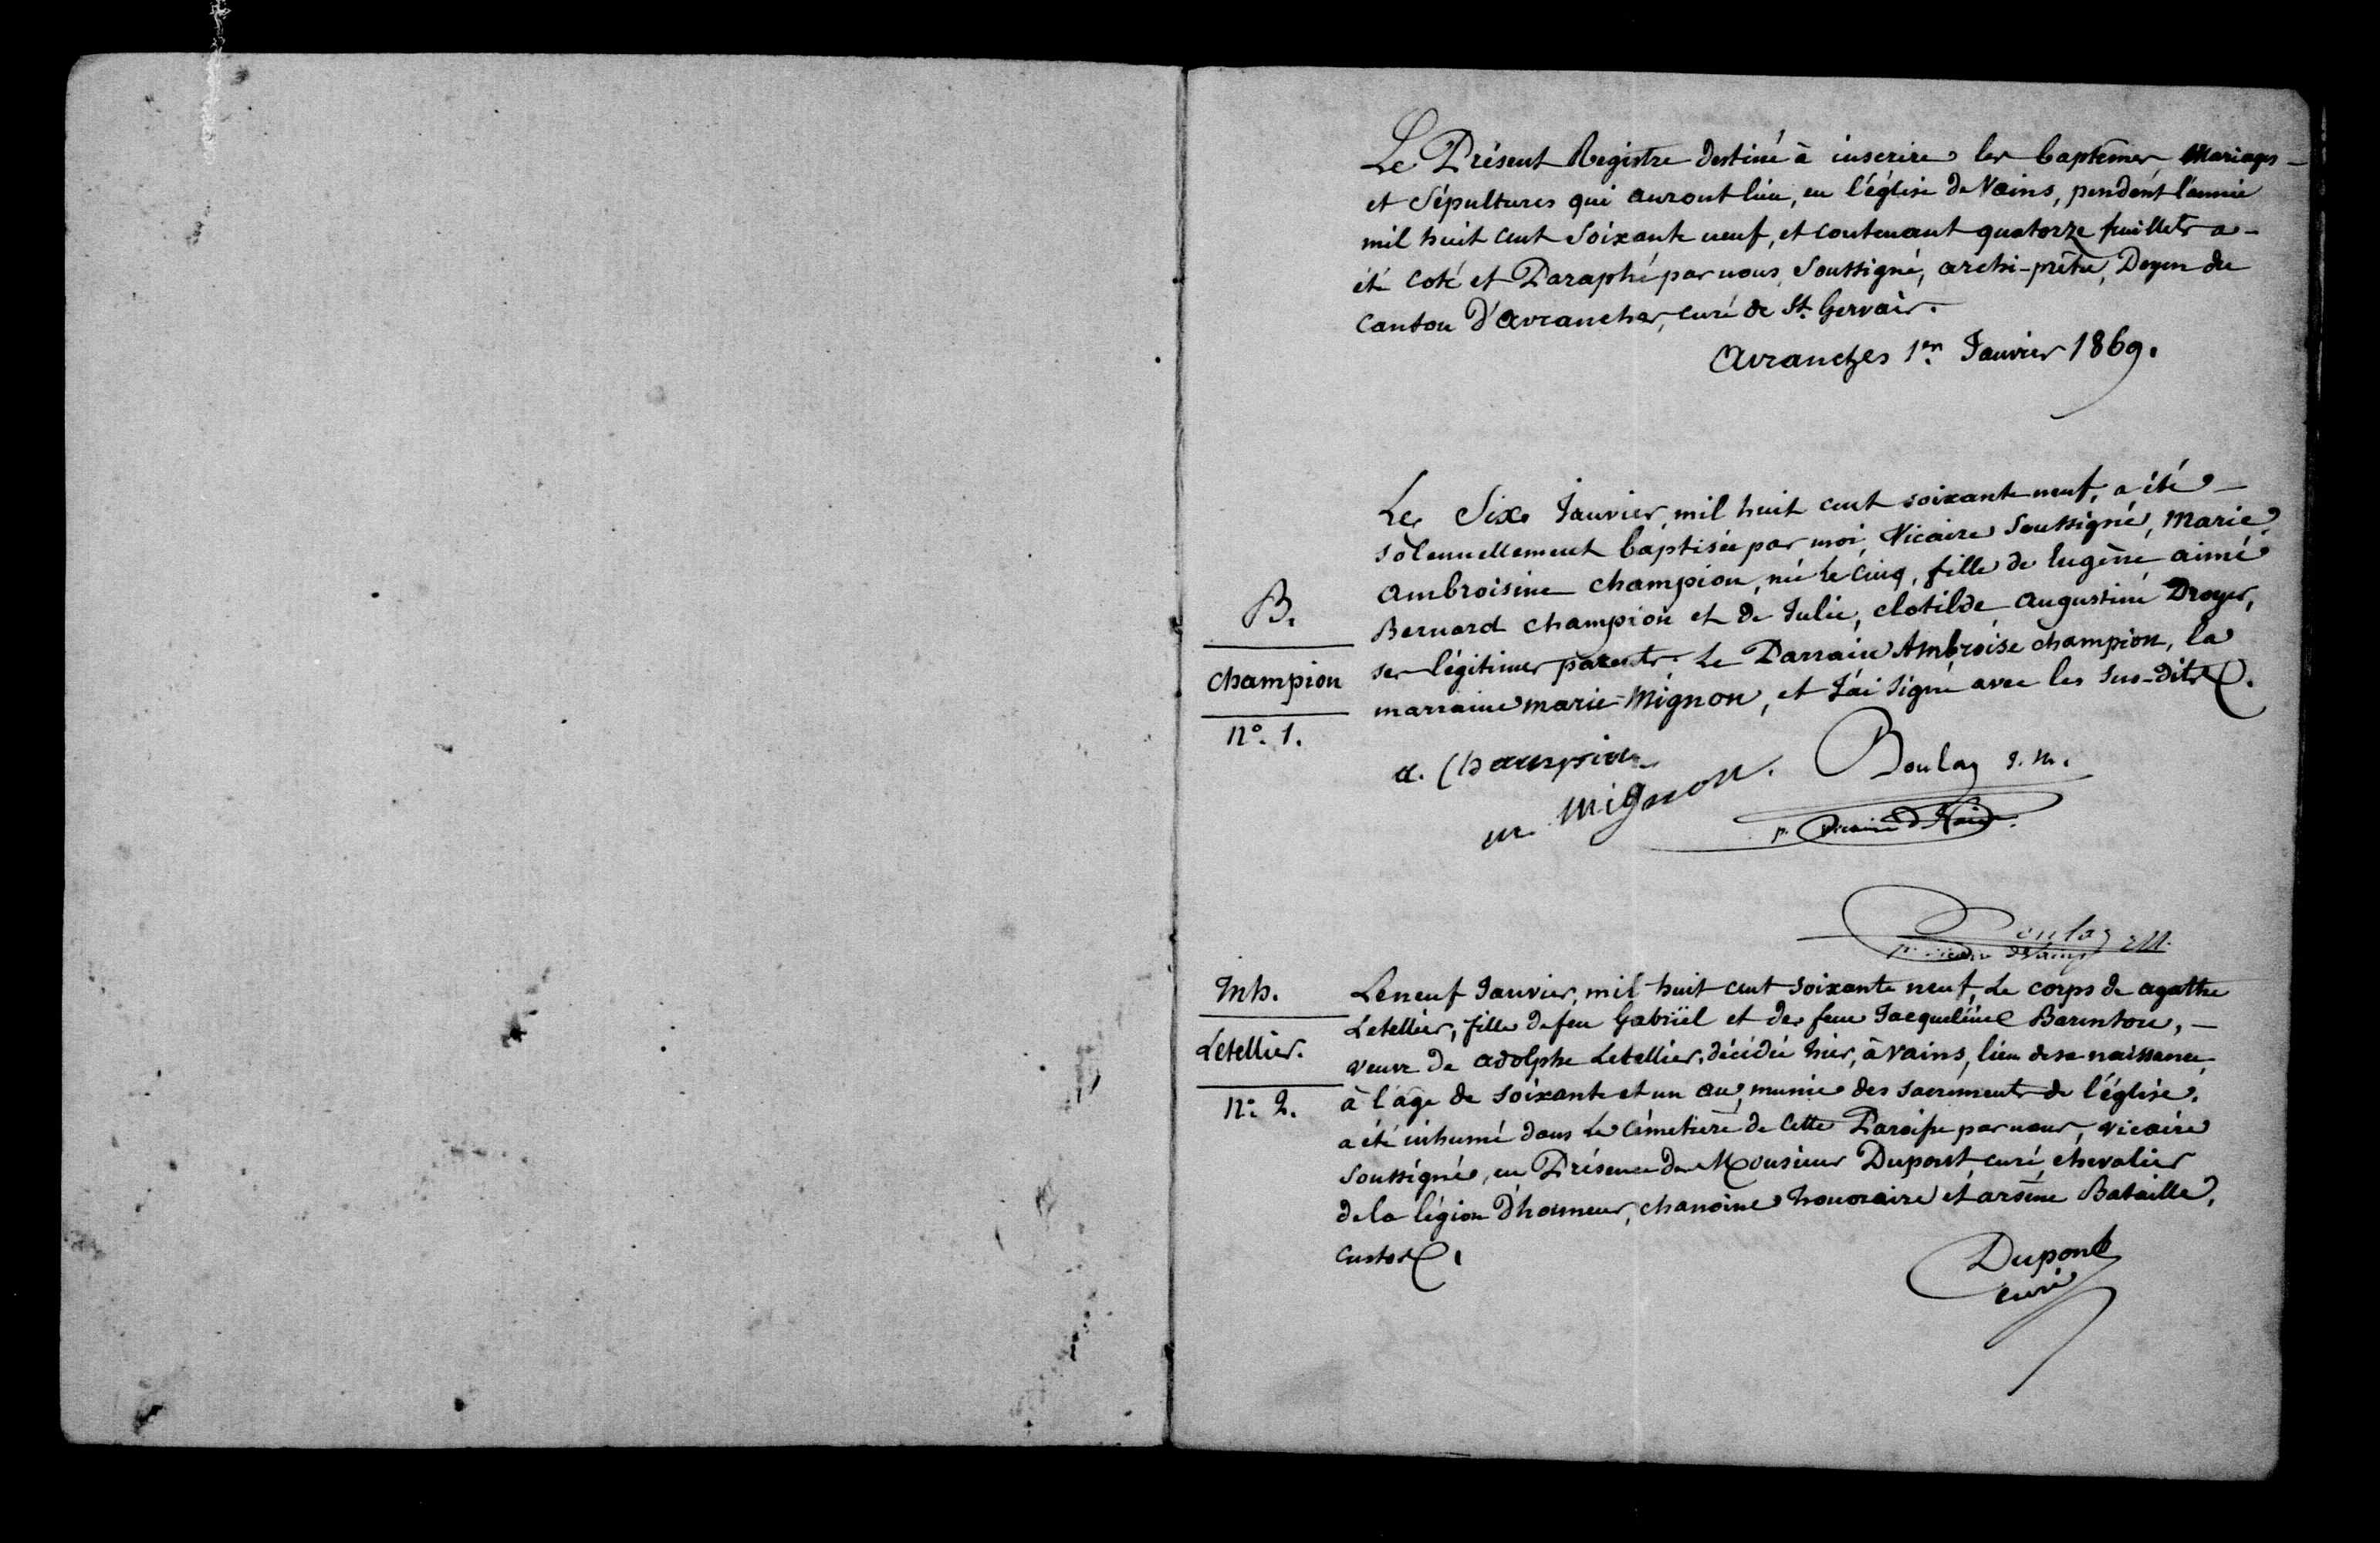 Le Présent Registre destiné à inscrire les baptêmes, Mariages -
et Sépultures qui auront lieu, en l'église de Vains, pendant l'année
mil huit cent soixante neuf, et contenant quatorze feuillets a -
été coté et Paraphé par nous, Soussigné, archi-prêtre, Doyen du
Canton d'Avranches, curé de St. Gervais.
Avranches 1er Janvier 1869.
Le Six Janvier, mil huit cent soixante neuf, a été -
solennellement baptisée par moi, Vicaire Soussigné, Marie,
Ambroisine champion, née le cinq, fille de Eugène aimé
Bernard champion et de Julie, clotilde, augustine Droyer,
ses légitimes parents. Le Parrain Ambroise champion, la
marraine marie-Mignon, et J'ai signé avec les sus-dits.
B.
champion
n°. 1.
a. Champion
m mignon. Boulay J. M.
p. vicaire d Vains
Boulay J.M.
p. vicaire d Vains
Inh.
Letellier.
n° 2.
Le neuf Janvier, mil huit cent soixante neuf, Le corps de agathe
Letellier, fille de feu Gabriël et de feue Jacqueline Barenton, -
veuve de adolphe Letellier, décédée hier, à Vains, lieu de sa naissance,
à l'âge de soixante et un an, munie des sacrements de l'église,
a été inhumé dans le cimetière de cette Paroisse par nous, vicaire
soussigné, en Présence de Monsieur Dupont, curé, chevalier
de la légion d'honneur, chanoine honoraire et arsène Bataille,
custos.
Dupont
curé